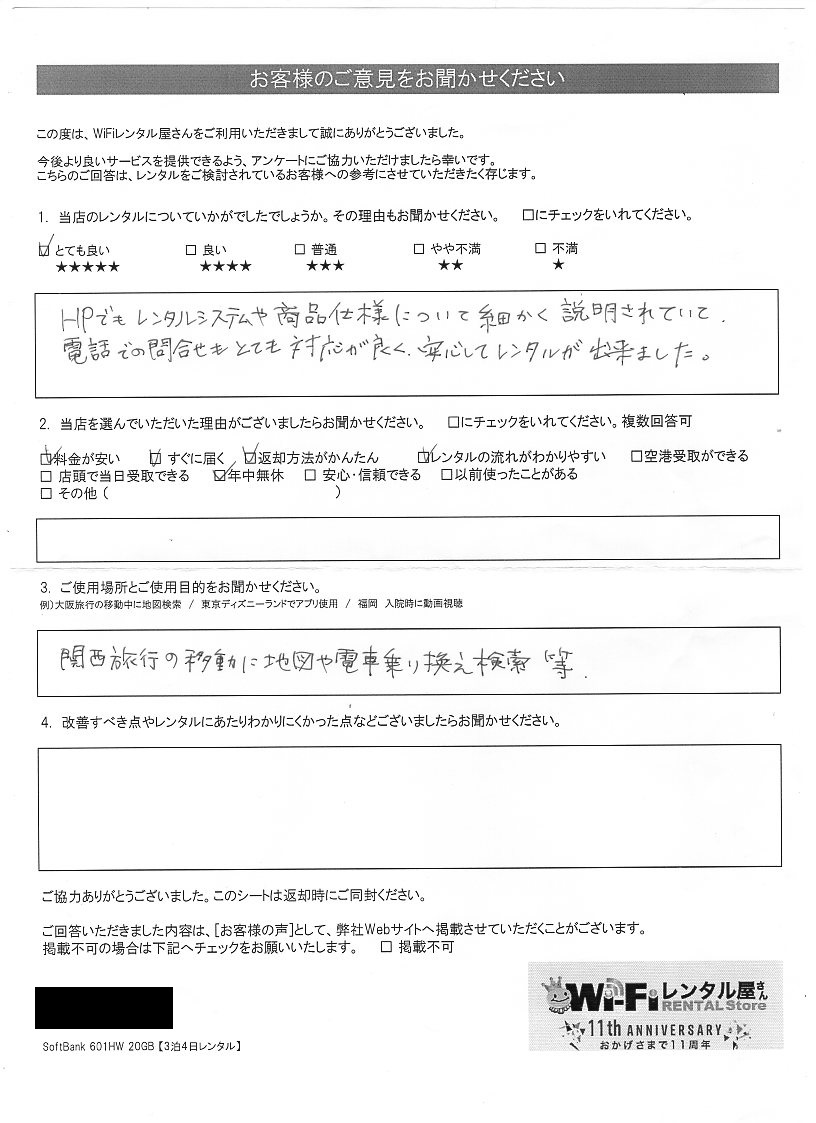 お客様のご意見をお聞かせください
この度は、WiFiレンタル屋さんをご利用いただきまして誠にありがとうございました。
今後より良いサービスを提供できるよう、アンケートにご協力いただけましたら幸いです。
こちらのご回答は、レンタルをご検討されているお客様への参考にさせていただきたく存じます。
1. 当店のレンタルについていかがでしたでしょうか。その理由もお聞かせください。 □にチェックをいれてください。
☑ とても良い □ 良い □ 普通 □ やや不満 □ 不満
★★★★★ ★★★★ ★★★ ★★ ★
HPでもレンタルシステムや商品仕様について細かく説明されていて、
電話での問合せもとても対応が良く、安心してレンタルが出来ました。
2. 当店を選んでいただいた理由がございましたらお聞かせください。 □にチェックをいれてください。複数回答可
☑料金が安い ☑ すぐに届く ☑返却方法がかんたん ☑レンタルの流れがわかりやすい □空港受取ができる
□ 店頭で当日受取できる ☑年中無休 □ 安心・信頼できる □以前使ったことがある
□ その他 ( )
3. ご使用場所とご使用目的をお聞かせください。
例)大阪旅行の移動中に地図検索 / 東京ディズニーランドでアプリ使用 / 福岡 入院時に動画視聴
関西旅行の移動に地図や電車乗り換え検索等.
4. 改善すべき点やレンタルにあたりわかりにくかった点などございましたらお聞かせください。
ご協力ありがとうございました。このシートは返却時にご同封ください。
ご回答いただきました内容は、[お客様の声]として、弊社Webサイトへ掲載させていただくことがございます。
掲載不可の場合は下記へチェックをお願いいたします。 □ 掲載不可
Wi-Fiレンタル屋さん
RENTAL Store
11th ANNIVERSARY
おかげさまで11周年
SoftBank 601HW 20GB【3泊4日レンタル】